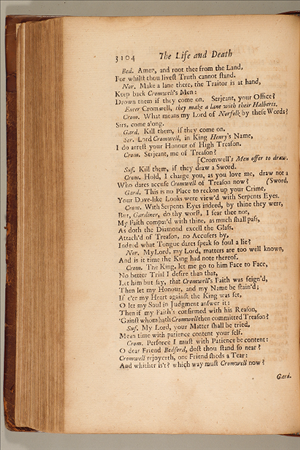 3104 The Life and Death
Bed. Amen, and root thee from the Land,
For whilst thou livest Truth cannot stand.
Nor. Make a lane there, the Traitor is at hand,
Keep back Cromwell's Men:
Drown them if they come on. Serjeant, your Office?
Enter Cromwell, they make a lane with their Halberts.
Crom. What means my Lord of Norfolk by these Words?
Sirs, come along.
Gard. Kill them, if they come on.
Ser. Lord Cromwell, in King Henry's Name,
I do arrest your Honour of High Treason.
Crom. Serjeant, me of Treason?
[Cromwell's Men offer to draw.
Suf. Kill them, if they draw a Sword.
Crom. Hold, I charge you, as you love me, draw not a
Who dares accuse Cromwell of Treason now? (Sword.
Gard. This is no Place to reckon up your Crime,
Your Dove-like Looks were view'd with Serpents Eyes.
Crom. With Serpents Eyes indeed, by thine they were,
But, Gardiner, do thy worst, I fear thee not,
My Faith compar'd with thine, as much shall pass,
As doth the Diamond excell the Glass.
Attach'd of Treason, no Accusers by,
Indeed what Tongue dares speak so foul a lie?
Nor. My Lord, my Lord, matters are too well known,
And it is time the King had note thereof.
Crom. The King, let me go to him Face to Face,
No better Trial I desire than that,
Let him but say, that Cromwell's Faith was feign'd,
Then let my Honour, and my Name be stain'd;
If e'er my Heart against the King was set,
O let my Soul in Judgment answer it:
Then if my Faith's confirmed with his Reason,
'Gainst whom hath Cromwell then committed Treason?
Suf. My Lord, your Matter shall be tried,
Mean time with patience content your self.
Crom. Perforce I must with Patience be content:
O dear Friend Bedford, dost thou stand so near?
Cromwell rejoyceth, one Friend sheds a Tear:
And whither is't? which way must Cromwell now?
Gard.